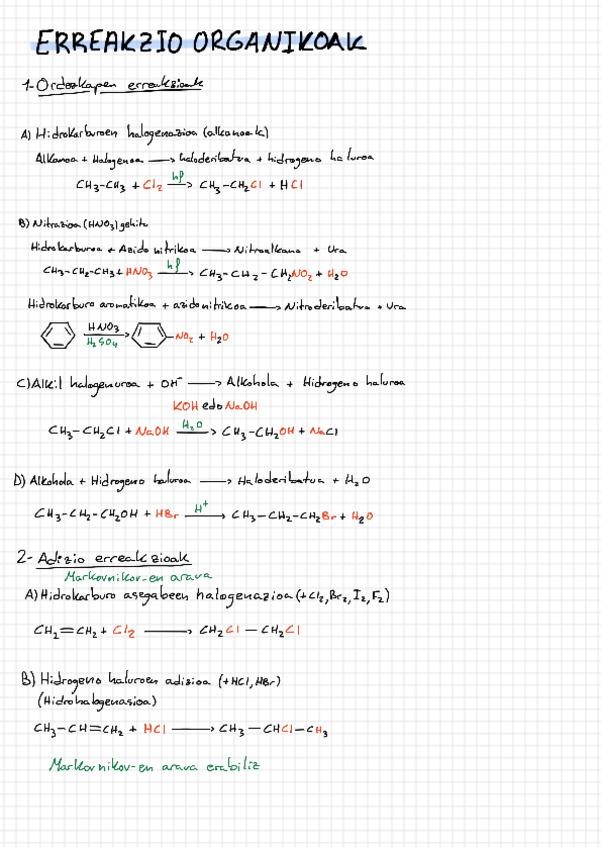 ERREAKZIO ORGANIKOAK
1-Ordezkapen erreakzioak
A) Hidrokarburoen halogenazioa (alkanoak)
Alkanoa + Halogenoa ⟶ haloderibatua + hidrogeno haluroa
CH₃-CH₃ + Cl₂ hf⟶ CH₃-CH₂Cl + HCl
B) Nitrazioa (HNO₃) gehitu
Hidrokarburoa + Azido nitrikoa ⟶ Nitroalkanoa + Ura
CH₃-CH₂-CH₃ + HNO₃ hf⟶ CH₃-CH₂-CH₂NO₂ + H₂O
Hidrokarburo aromatikoa + azido nitrikoa ⟶ Nitroderibatua + Ura
HNO₃
H₂SO₄ ⟶ -NO₂ + H₂O
C) Alkil halogenuroa + OH⁻ ⟶ Alkohola + Hidrogeno haluroa
KOH edo NaOH
CH₃-CH₂Cl + NaOH H₂O⟶ CH₃-CH₂OH + NaCl
D) Alkohola + Hidrogeno haluroa ⟶ Haloderibatua + H₂O
CH₃-CH₂-CH₂OH + HBr H⁺⟶ CH₃-CH₂-CH₂Br + H₂O
2- Adizio erreakzioak
Markovnikov-en araua
A) Hidrokarburo asegabeen halogenazioa (+Cl₂, Br₂, I₂, F₂)
CH₂=CH₂ + Cl₂ ⟶ CH₂Cl-CH₂Cl
B) Hidrogeno haluroen adizioa (+HCl, HBr)
(Hidrohalogenasioa)
CH₃-CH=CH₂ + HCl ⟶ CH₃-CHCl-CH₃
Markovnikov-en araua erabiliz